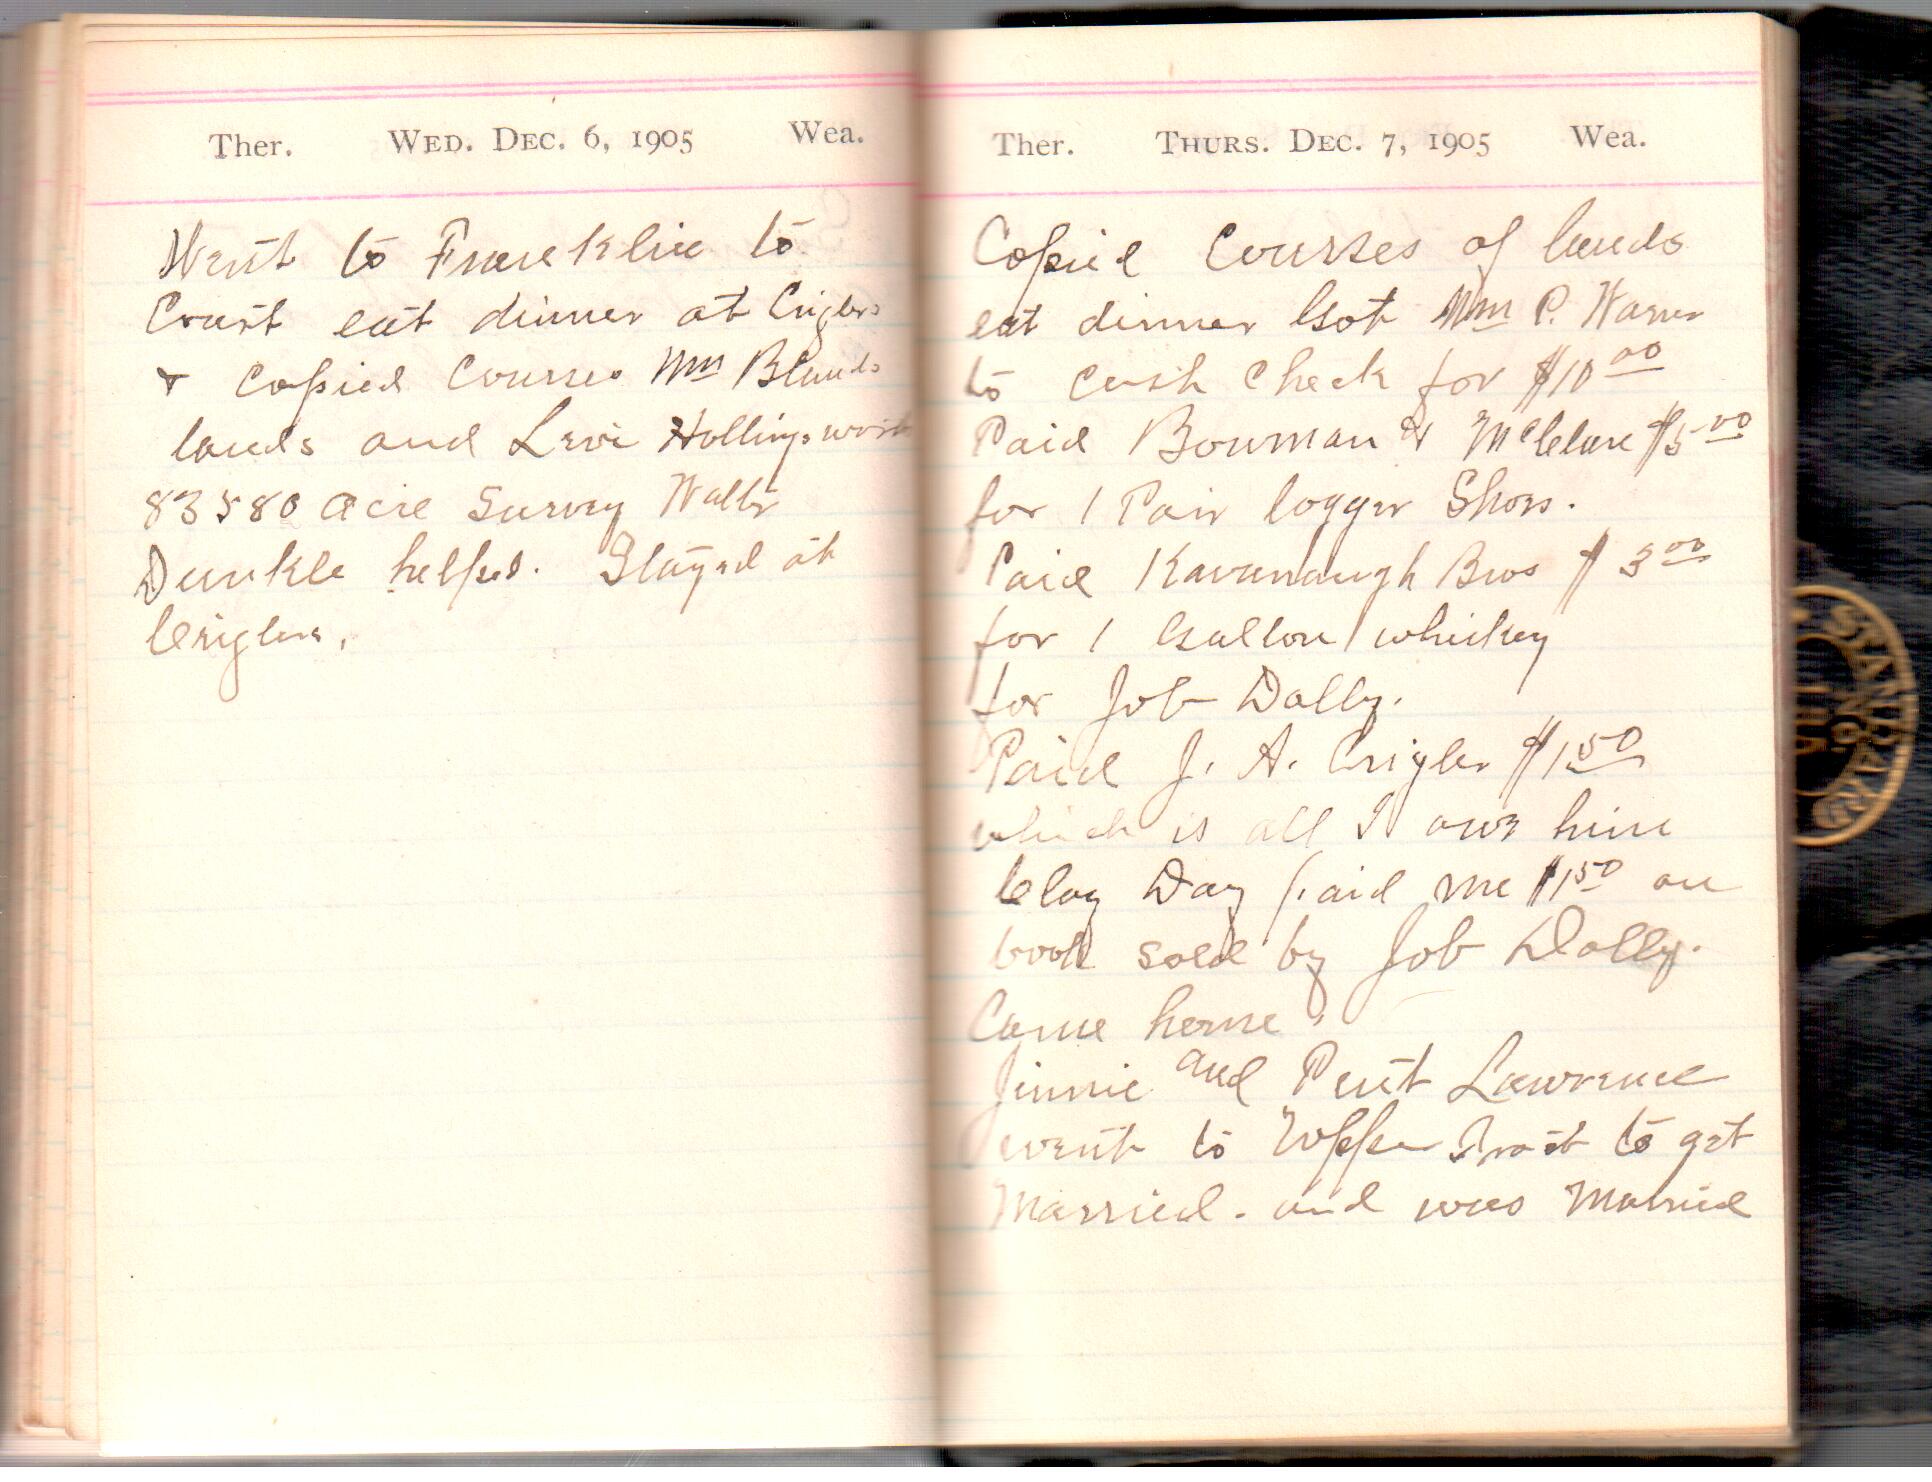 Ther. WED. DEC. 6, 1905 Wea.
Went to Franklin to
Court eat dinner at Criglers
& Copied Courses Wm Blands
lands and Levi Hollingsworth
83580 acre Survey Walter
Dunkle helped. Stayed at
Criglers.
Ther. THURS. DEC. 7, 1905 Wea.
Copied Courses of lands
eat dinner Got Wm P. Warner
to Cash Check for $10 00
Paid Bowman & McClure $5 00
for 1 Pair logger Shoes.
Paid Kavanaugh Bros $3 00
for 1 Gallon whiskey
for Job Dolly.
Paid J. A. Crigler $1 50
which is all I owe him
Clay Day paid me $1 50 on
book sold by Job Dolly.
Came home.
Jinnie and Pent Lawrence
went to Upper Tract to get
Married. and was Married
STANDARD
NO.